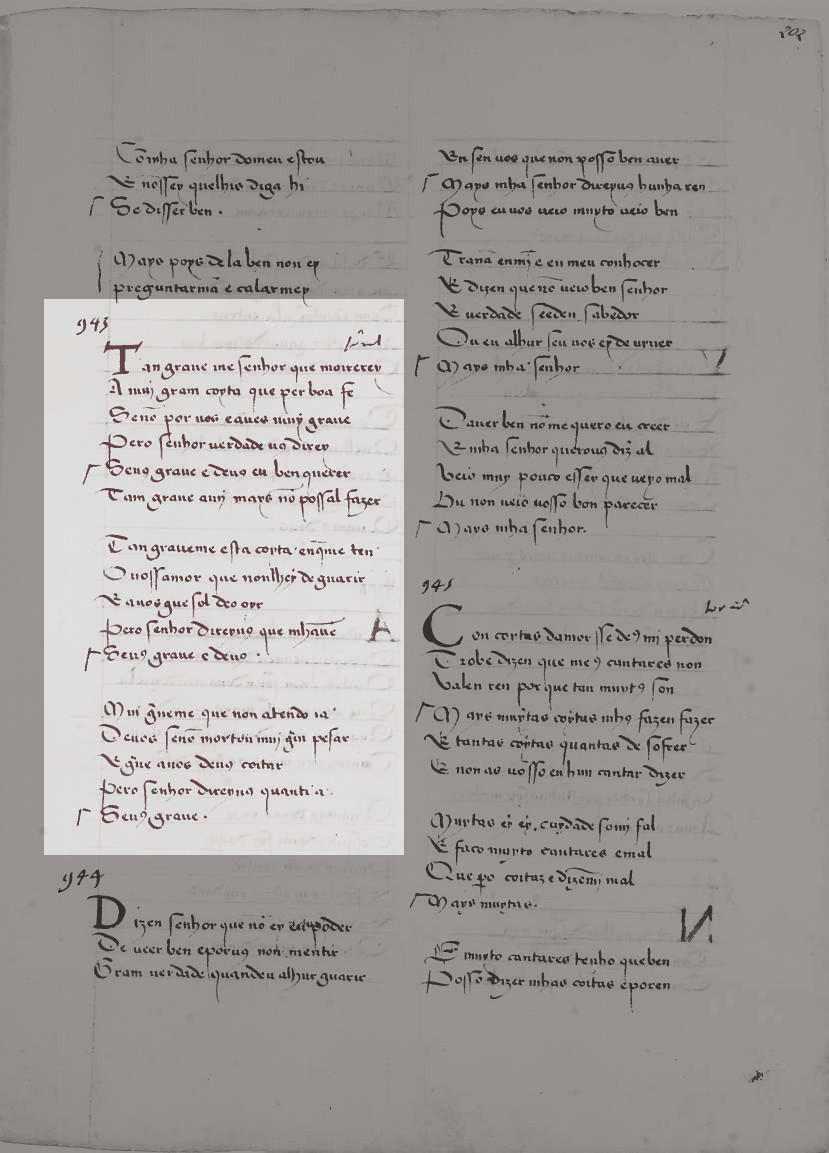 Cōmha senhor domeu estou
E nōssey quelhis diga hi
Se disser ben .
Mays poys de la ben non ey
preguntarmā e calarmey
943
Tan graue me senhor que moirerey
A mui gram coyta que per boa fe
Senō por uos eaues muy graue
Pero senhor uerdade uꝯ direy
Seuꝯ graue e deuꝯ eu ben querer
Tam graue ami mays nō possal fazer
Tan graueme esta coyta enq̄me ten
O uossamor que nonlhey de guarir
E auos gue sol deo oyr
Pero senhor direyuꝯ que mhauē
Seuꝯ graue e deuꝯ .
Mui g̃ueme que non atendo ia
Deuos senō morton mui gͣm pesar
E gͣue auos deuꝯ coitar
Pero senhor direyuꝯ quanti a .
Seuꝯ graue .
944
Dizen senhor que nō ey poder
De ueer ben eporuꝯ non mentir
Gram uerdade quandeu alhur guarir
202
En sen uos que non possō ben auer
Mays mha senhor direyuꝯ hunha ren
Poys eu uos ueio muyto ueio ben
Tranā enmī e en meu conhocer
E dizen que nō ueio ben senhor
E uerdade seeden sabedor
Ou eu alhur seu uos ey de uiuer
Mays mha senhor
Dauer ben nō me quero eu creer
E mha senhor querouꝯ diz̄ al
Veio muy pouco esser que ueyo mal
Hu non ueio uosso bon parecer
Mays mha senhor.
945
Con coytas damor sse deꝯ mi perdon
Trobe dizen que meꝯ cantares non
Valen ren por que tan muytꝯ son
Mays muytas coytas mhꝯ fazen fazer
E tantas coytas quantas de sofrer
E non as uosso en hun cantar dizer
Muytas ey ey , cuydade somi fal
E faco muyto cantares emal
Que p̱o coitaz e dizenmi mal
Mays muytas.
E muyto cantares tenho queben
Possō dizer mhas coitas eporen